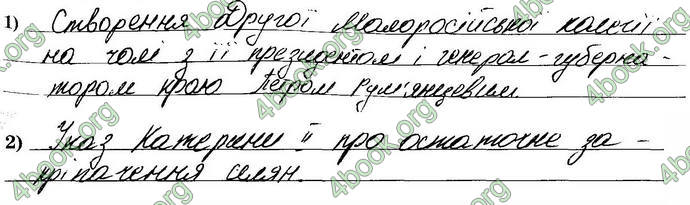 1) Створення Другої Малоросійської колегії
на чолі з її президентом і генерал-губерна-
тором краю Петром Рум'янцевим
2) Указ Катерини ІІ про остаточне за-
кріпачення селян.